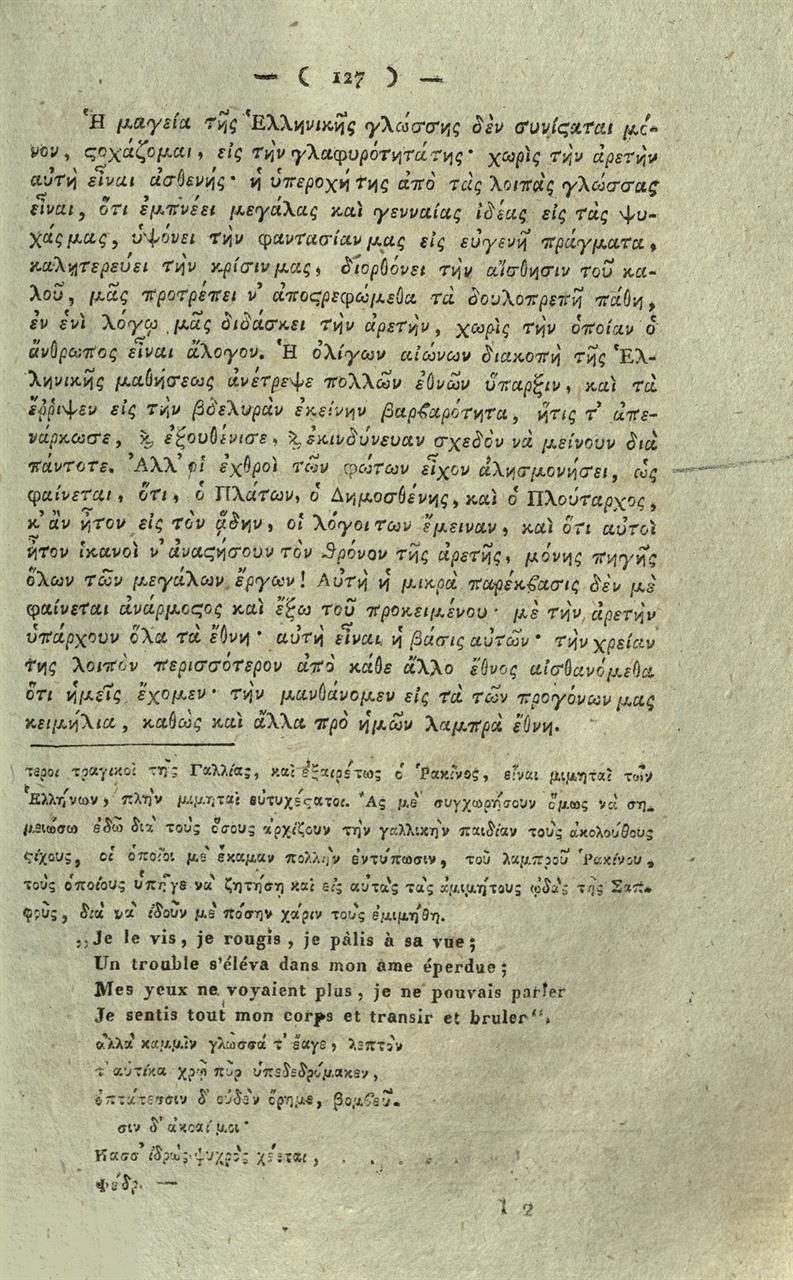 — ( 127 ) —
Ἡ μαγεία τῆς Ἑλληνικῆς γλώσσης δὲν συνίςαται μό-
νον, ςοχάζομαι, εἰς τὴν γλαφυρότητάτης· χωρὶς τὴν ἀρετὴν
αὐτὴ εἶναι ἀσθενής· ἡ ὑπεροχήτης ἀπὸ τὰς λοιπὰς γλώσσας
εἶναι, ὅτι ἐμπνέει μεγάλας καὶ γενναίας ἰδέας εἰς τὰς ψυ-
χάςμας, ὑψόνει τὴν φαντασίανμας εἰς εὐγενῆ πράγματα,
καλητερεύει τὴν κρίσινμας, διορθόνει τὴν αἴσθησιν τοῦ κα-
λοῦ, μᾶς προτρέπει ν' ἀποςρεφώμεθα τὰ δουλοπρεπῆ πάθη,
ἐν ἑνὶ λόγῳ μᾶς διδάσκει τὴν ἀρετὴν, χωρὶς τὴν ὁποίαν ὁ
ἄνθρωπος εἶναι ἄλογον. Ἡ ὀλίγων αἰώνων διακοπὴ τῆς Ἑλ-
ληνικῆς μαθήσεως ἀνέτρεψε πολλῶν ἐθνῶν ὕπαρξιν, καὶ τὰ
ἔῤῥιψεν εἰς τὴν βδελυρὰν ἐκείνην βαρϐαρότητα, ἥτις τ' ἀπε-
νάρκωσε, ϗ ἐξουθένισε, ϗ ἐκινδύνευαν σχεδὸν νὰ μείνουν διὰ
πάντοτε. Ἀλλ' οἱ ἐχθροὶ τῶν φώτων εἶχον ἀλησμονήσει, ὡς
φαίνεται, ὅτι, ὁ Πλάτων, ὁ Δημοσθένης, καὶ ὁ Πλούταρχος,
κ' ἂν ἦτον εἰς τὸν ᾅδην, οἱ λόγοι των ἔμειναν, καὶ ὅτι αὐτοὶ
ἦτον ἱκανοὶ ν' ἀναςήσουν τὸν θρόνον τῆς ἀρετῆς, μόνης πηγῆς
ὅλων τῶν μεγάλων ἔργων! Αὐτὴ ἡ μικρὰ παρέκϐασις δὲν μὲ
φαίνεται ἀνάρμοςος καὶ ἔξω τοῦ προκειμένου· μὲ τὴν ἀρετὴν
ὑπάρχουν ὅλα τὰ ἔθνη· αὐτὴ εἶναι ἡ βάσις αὐτῶν· τὴν χρείαν
της λοιπὸν περισσότερον ἀπὸ κάθε ἄλλο ἔθνος αἰσθανόμεθα
ὅτι ἡμεῖς ἔχομεν· τὴν μανθάνομεν εἰς τὰ τῶν προγόνων μας
κειμήλια, καθὼς καὶ ἄλλα πρὸ ἡμῶν λαμπρὰ ἔθνη.
τεροι τραγικοὶ τῆς Γαλλίας, καὶ ἐξαιρέτως ὁ Ῥακῖνος, εἶναι μιμηταὶ τῶν
Ἑλλήνων, πλὴν μιμηταὶ εὐτυχέςατοι. Ἂς μὲ συγχωρήσουν ὅμως νὰ ση-
μειώσω ἐδῶ διὰ τοὺς ὅσους ἀρχίζουν τὴν γαλλικὴν παιδίαν τοὺς ἀκολούθους
ςίχους, οἱ ὁποῖοι μὲ ἔκαμαν πολλὴν ἐντύπωσιν, τοῦ λαμπροῦ Ῥακίνου,
τοὺς ὁποίους ὑπῆγε νὰ ζητήσῃ καὶ εἰς αὐτὰς τὰς ἀμιμήτους ᾠδὰς τῆς Σαπ-
φοῦς, διὰ νὰ ἰδοῦν μὲ πόσην χάριν τοὺς ἐμιμήθη.
„Je le vis, je rougis, je pâlis à sa vue;
Un trouble s'éléva dans mon ame éperdue;
Mes yeux ne voyaient plus, je ne pouvais parler
Je sentis tout mon corps et transir et bruler“.
ἀλλὰ καμμὶν γλῶσσά τ' ἔαγε, λεπτὸν
τ' αὐτίκα χρῷ πῦρ ὑπεδεδρόμακεν,
ὀπτάτεσσιν δ' οὐδὲν ὄρημε, βομϐεῦ-
σιν δ' ἀκοαί μοι·
Καςς' ἱδρὼς ψυχρὸς χέεται, . . . . .
Φέδρ. —
1 2